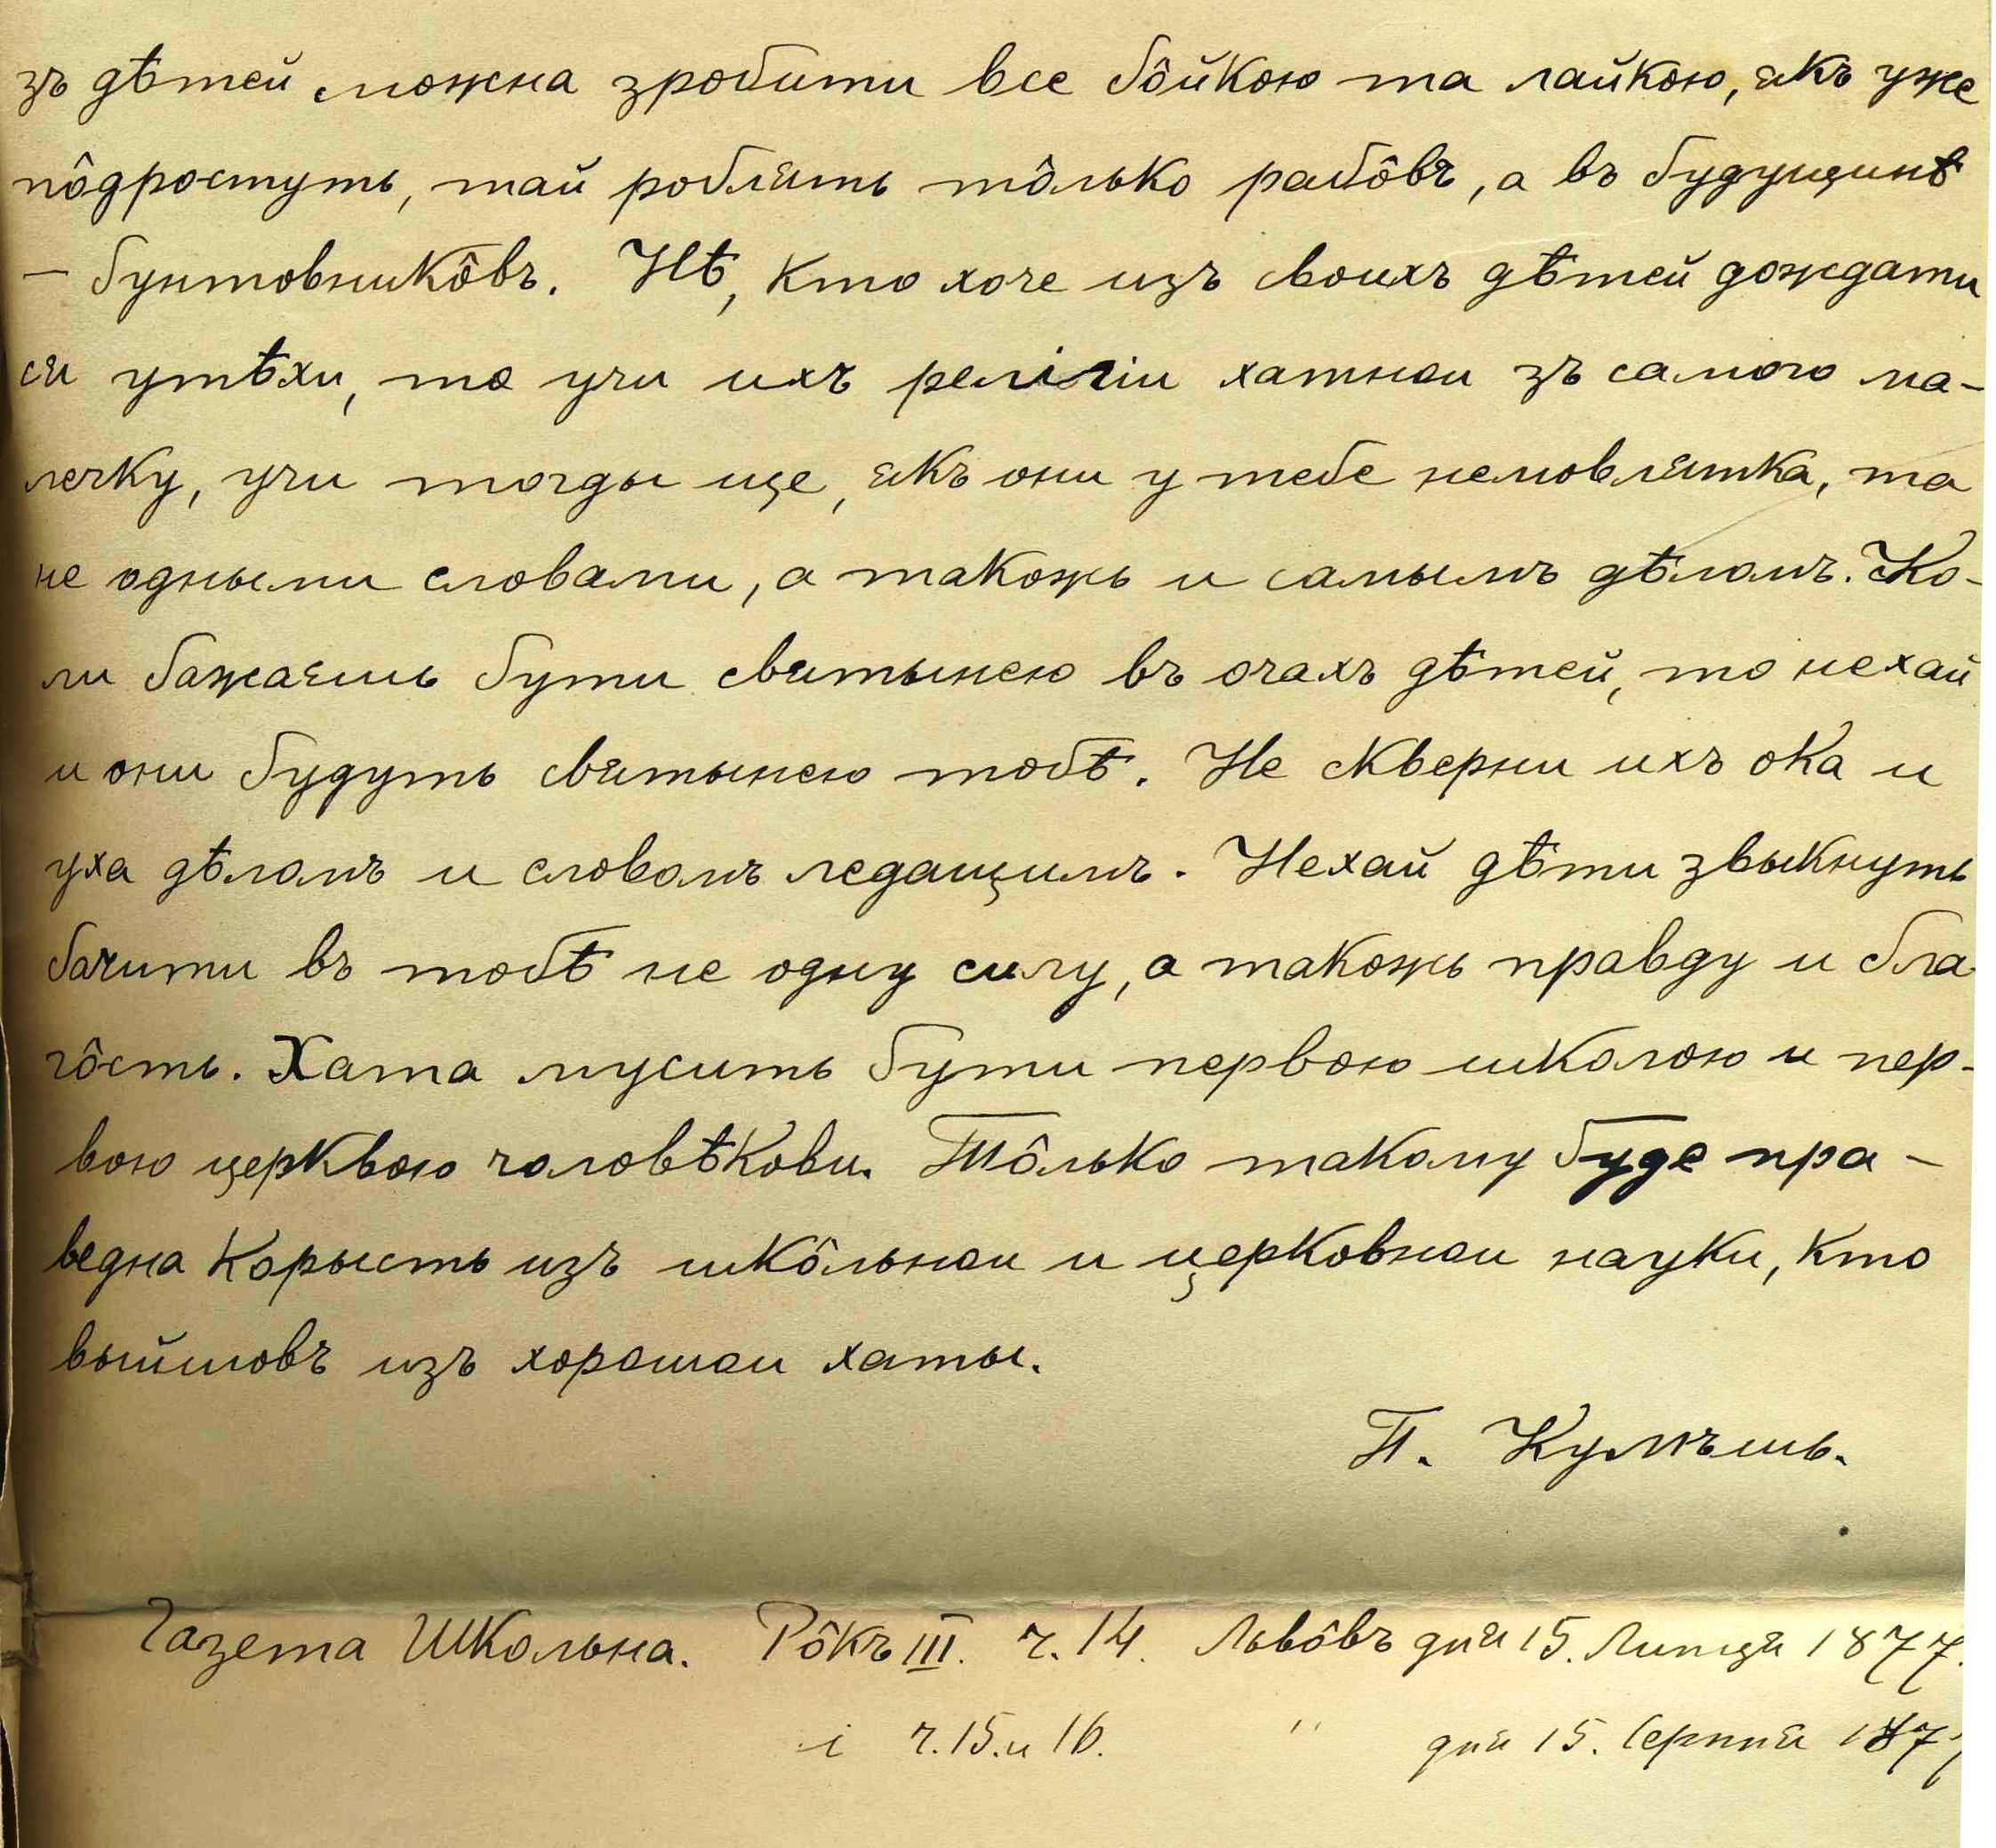 зъ дѣтей можна зробити все бôйкою та лайкою, якъ уже
пôдростуть, тай роблять тôлько рабôвъ, а въ будущинѣ
— бунтовникôвъ. Нѣ, кто хоче изъ своихъ дѣтей дождати
ся утѣхи, то учи ихъ релігіи хатнои зъ самого ма-
лечку, учи тогды ще, якъ они у тебе немовлятка, та
не одными словами, а такожь и самымъ дѣломъ. Ко-
ли бажаєшь бути святынею въ очахъ дѣтей, то нехай
и они будуть святынею тобѣ. Не скверни ихъ ока и
уха дѣломъ и словомъ ледащимъ. Нехай дѣти звыкнуть
бачити въ тобѣ не одну силу, а такожь правду и бла
гôсть. Хата мусить бути первою школою и пер-
вою церквою чоловѣкови. Тôлько такому буде пра-
ведна корысть изъ шкôльнои и церковнои науки, кто
выйшовъ изъ хорошои хаты.
П. Кулѣшь.
Газета Школьна. Рôкъ III. ч. 14. Львôвъ дня 15. Липця 1877.
і ч. 15. и 16. " дня 15. Серпня 1877